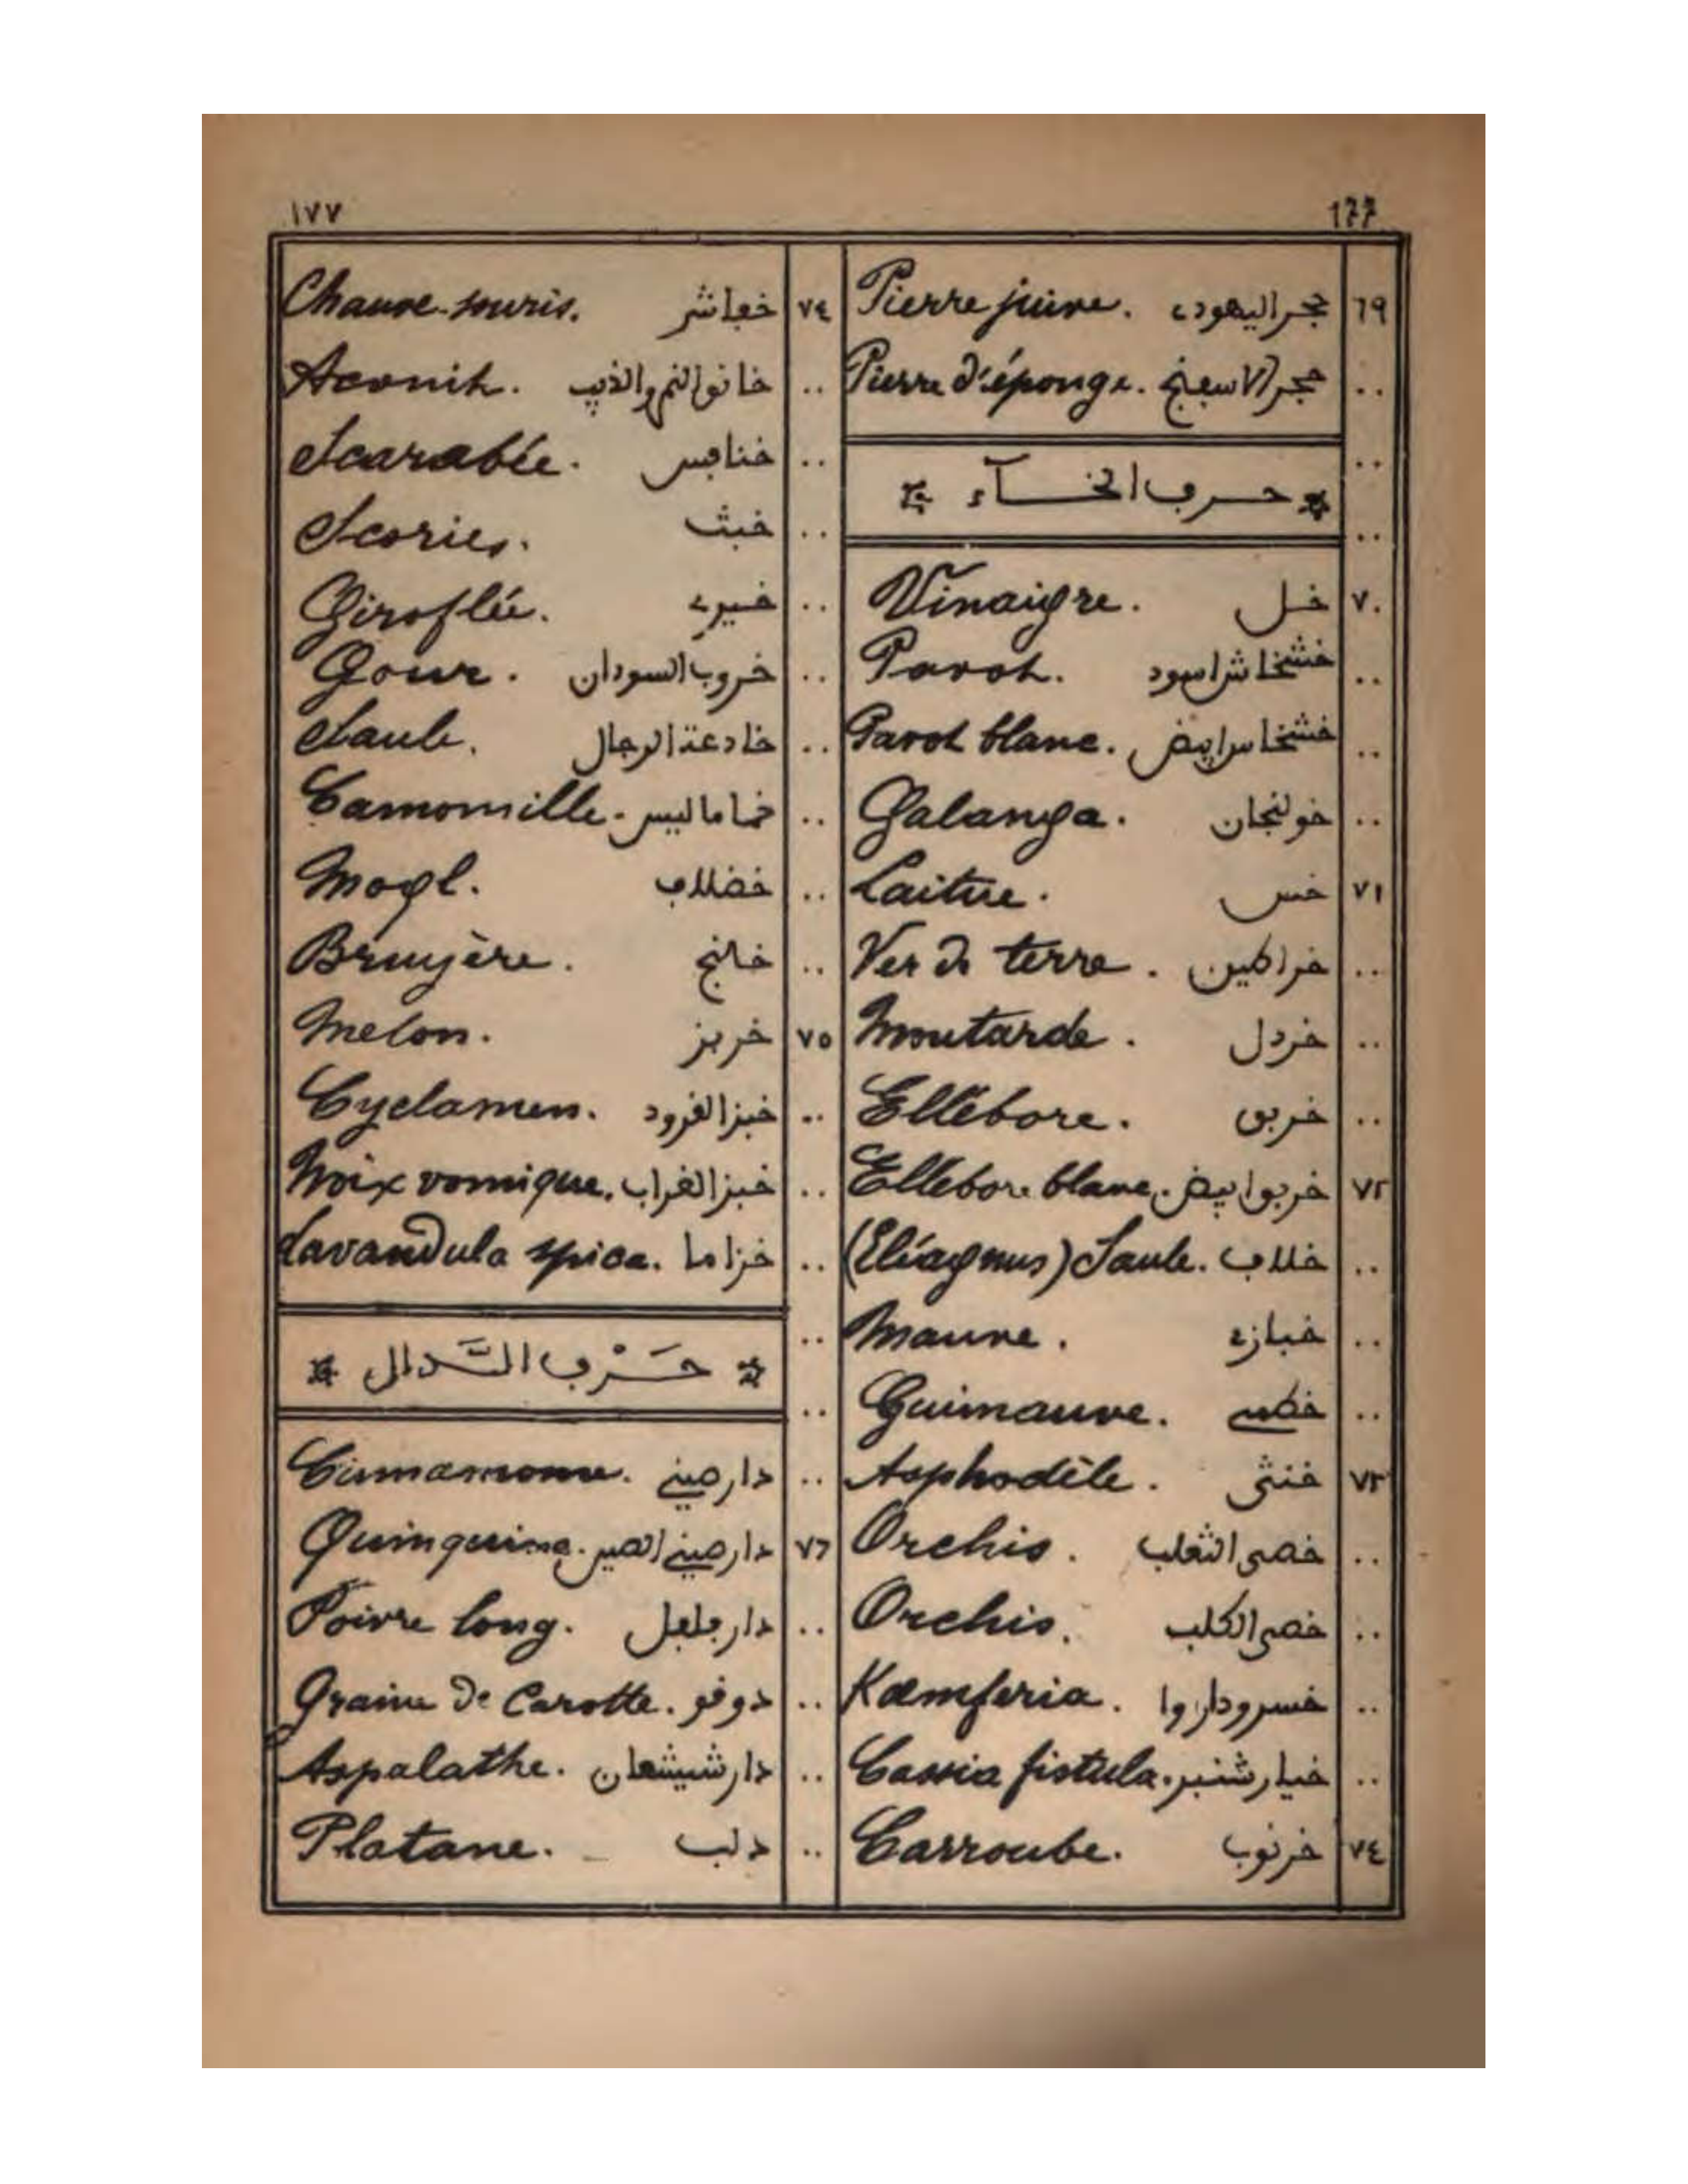 ١٧٧ 177
٦٩ حجر اليهودي Pierre juive.
.. حجر الاسفنج Pierre d'éponge.
..
حرف الخـآء
..
٧٠ خل Vinaigre.
.. خشخاش اسود Pavot.
.. خشخاس ابيض Pavot blanc.
.. خولنجان Galanga.
٧١ خس Laitue.
.. خراطين Ver de terre.
.. خردل Moutarde.
.. خربق Ellébore.
٧٢ خربق ابيض Ellébore blanc.
.. خلاف (Eléagnus) Saule.
.. خبازي Mauve.
.. خطمي Guimauve.
٧٣ خنثى Asphodèle.
.. خصى الثعلب Orchis.
.. خصى الكلب Orchis.
.. خسروداروا Kæmferia.
.. خيارشنبر Cassia fistula.
٧٤ خرنوب Carroube.
٧٤ خفاش Chauve-souris.
.. خانق النمر والذيب Aconit.
.. خنافس Scarabée.
.. خبث Scories.
.. خيري Giroflée.
.. خروب السودان Gour.
.. خادعة الرجال Saule.
.. خاماليس Camomille.
.. خضلاف Mogl.
.. خالنج Bruyère.
٧٥ خربز Melon.
.. خبز القرود Cyclamen.
.. خبز الغراب Noix vomique.
.. خزاما Lavandula spica.
..
حَرْف الـدَّال
..
.. دار صيني Cinnamome.
٧٦ دار صيني الصين Quinquina.
.. دار فلفل Poivre long.
.. دوقو Graine de Carotte.
.. دار شيشعان Aspalathe.
.. دلب Platane.